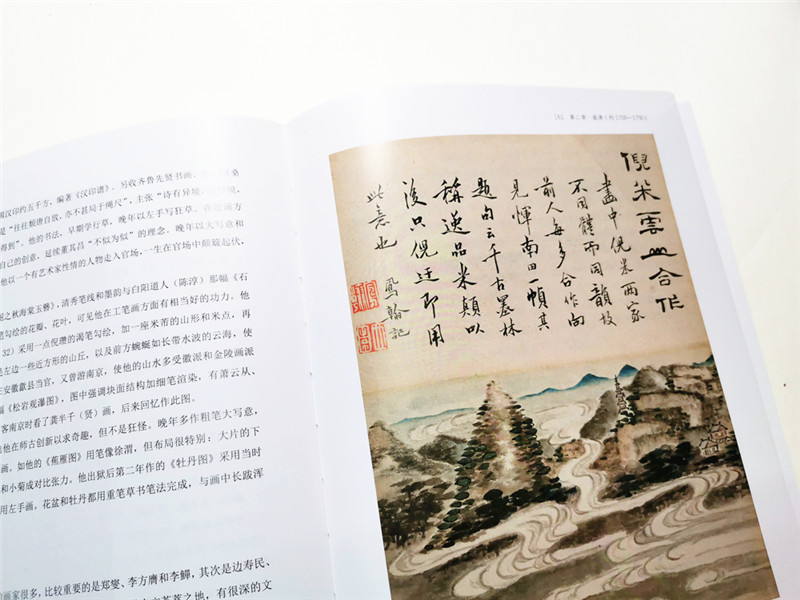 国汉印约五千方，编著《汉印谱》。另收齐鲁先贤书画
是“往往貌唐自故，亦不甚局于绳尺”，主张“诗有异境
得到”。他的书法，早期学行草，晚年以左手写狂草。
自己的创意，是续董其昌“不似为似”的理念。
他以一个有艺术家性情的人物走入官场，一生在官场中颠簸起伏，
之秋海棠玉簪》，清秀笔线和墨韵与白阳道人（陈淳）那幅《石
笔勾绘的花瓣、花叶，可见他在工笔画方面有相当好的功力。他
32）采用一点倪瓒的渴笔勾绘，加一座米芾的山形和米点，再
是左边一些近方形的山丘，以及前方蜿蜒如长带水波的云海，使
在安徽歙县当官，又曾游南京，使他的山水多受徽派和金陵画派
幅《松岩观瀑图》，图中强调块面结构加细笔渲染，有萧云从、
客南京时看了龚半千（贤）画，后来回忆作此图。
他在师古创新以求奇趣，但不是狂怪。晚年多作粗笔大写意，
画。如他的《蕉雁图》用笔像徐渭，但布局很特别：大片的下
和小菊成对比张力。他出狱后第二年作的《牡丹图》采用当时
用左手画。花盆和牡丹都用重笔草书笔法完成，与画中长跋浑
画家很多，比较重要的是郑燮、李方膺和李鱓，其次是边寿民、
之地，有很深的文
第二章
倪米云山合作
画中倪米两家
不同体而同韵故
前人每多合作向
见恽南田一帧其
题句云千古墨林
称逸品米颠以
后只倪迂即用
此意也